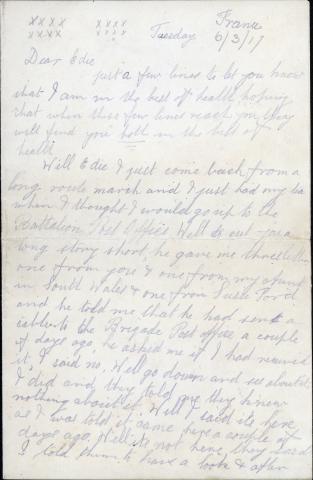 xxxx xxxx France
xxxx xxxx Tuesday 6/3/17
Dear Edie
just a few lines to let you know
that I am in the best of health hoping
that when these few lines reach you they
will find you both in the best of
health
Well Edie I just come back from a
long route march and I just had my tea
when I thought I would go up to the
Battalion Post Office Well to cut a
long story short, he gave me three letters
one from you & one from my Aunt
in South Wales & one from Susie Ford
and he told me that he had sent a
cable to the Brigade Post office a couple
of days ago, he asked me if I had received
it, I said no, Well go down and see about it
I did and they told me they knew
nothing about it. Well I said its here
as I was told it came here a couple of
days ago. Well its not here they said
I told them to have a look & after